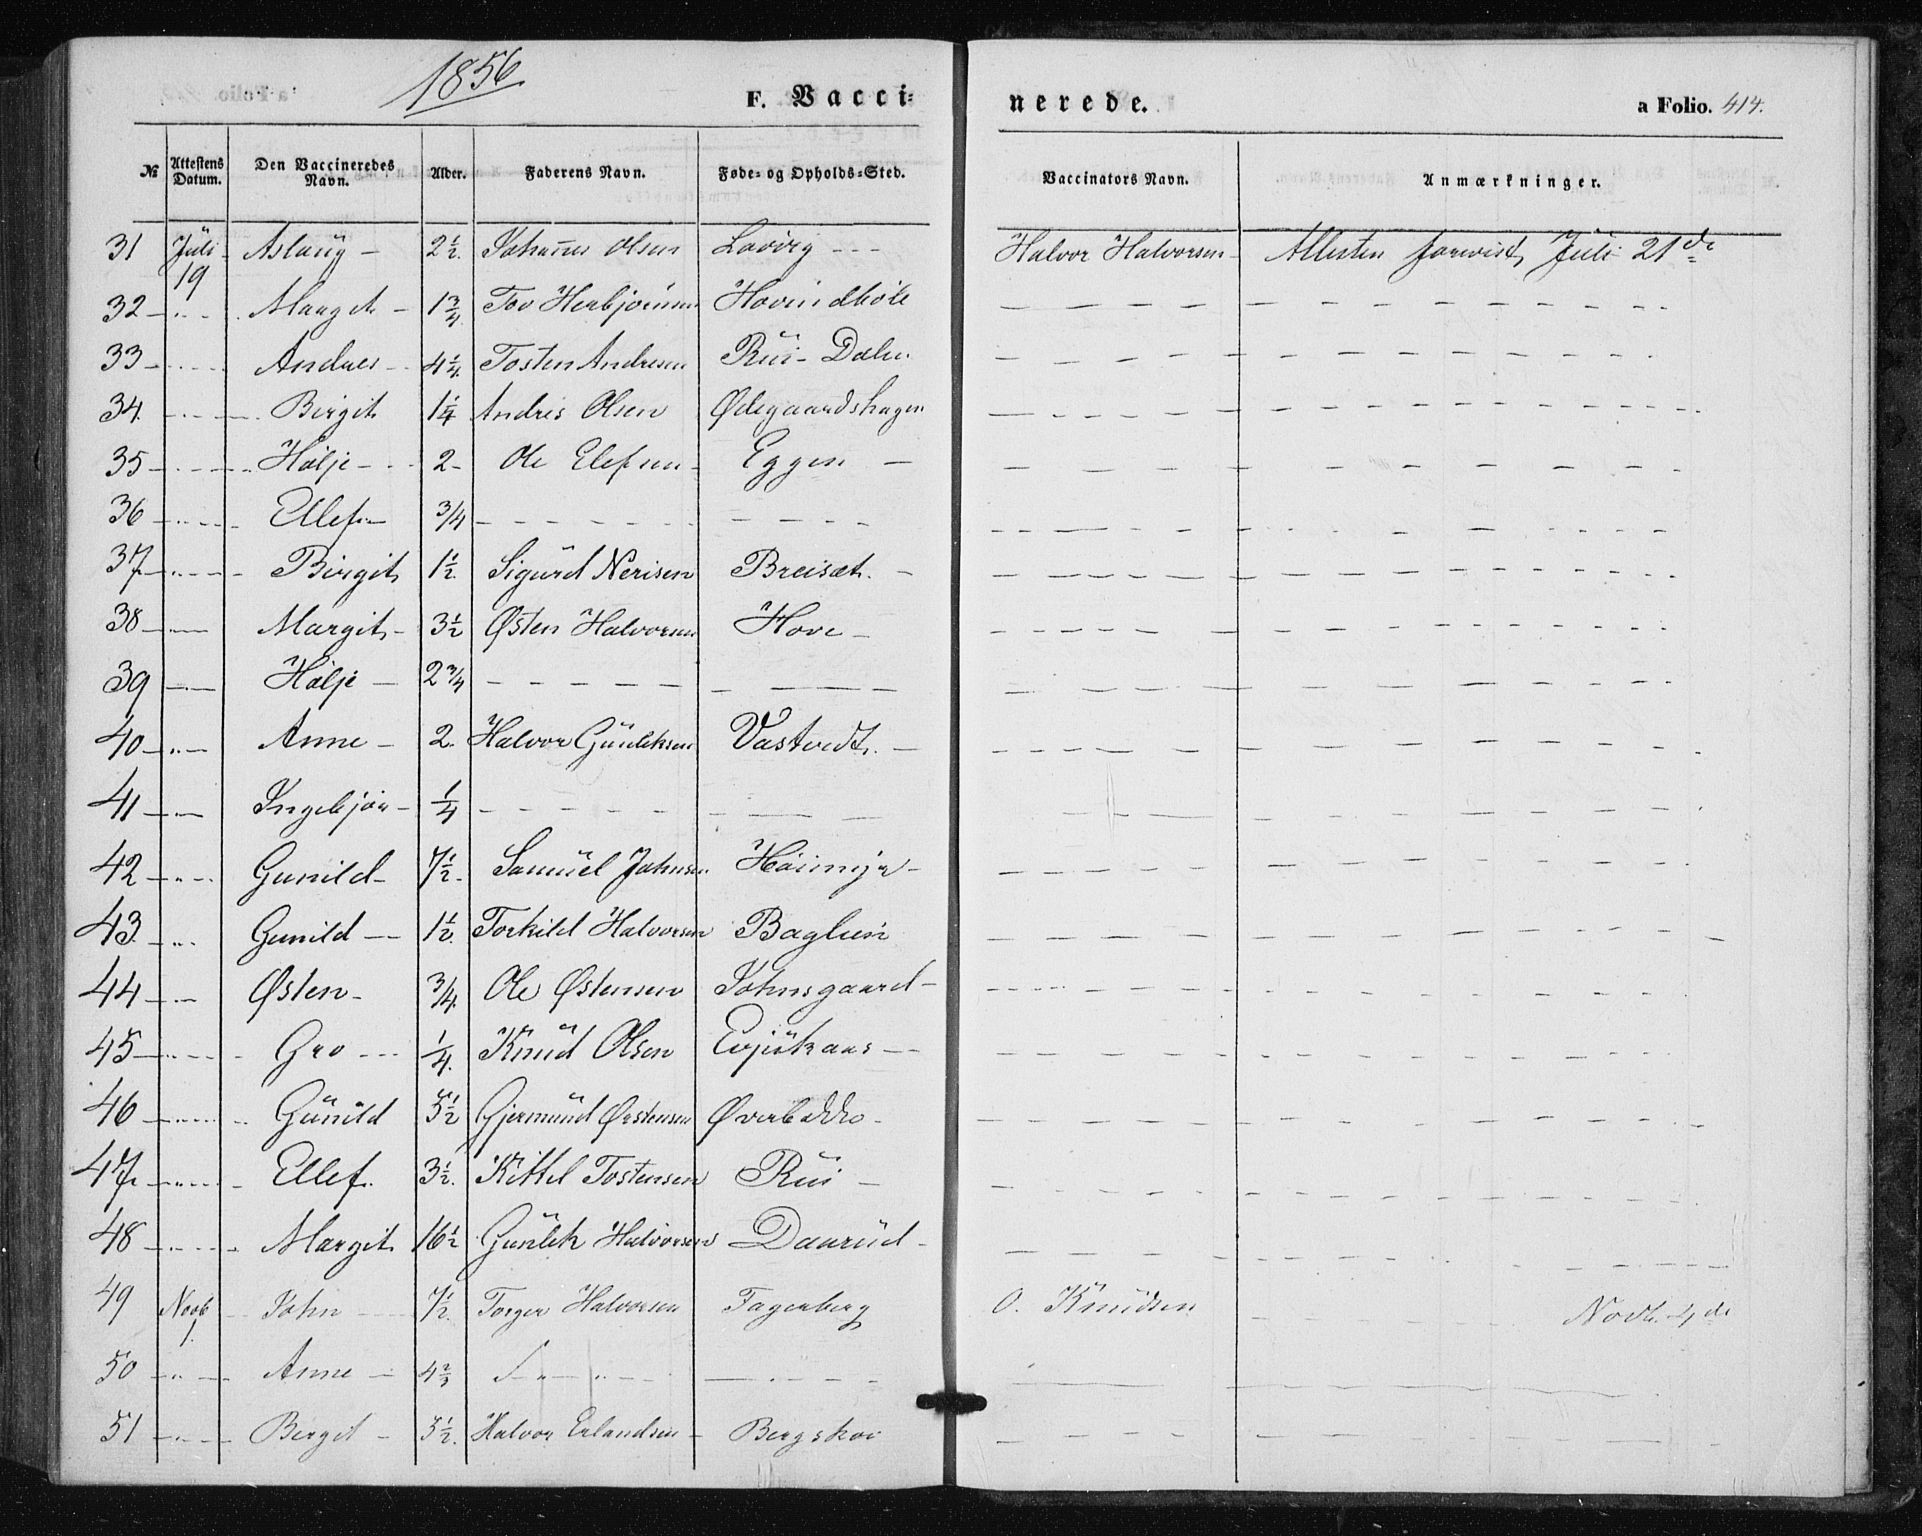 1856
F. Vacci-
nerede.
a Folio. 414.
№ Attestens Datum. Den Vaccineredes Navn. Alder. Faderens Navn. Føde- og Opholds-Sted. Vaccinators Navn. Anmærkninger.
31 Juli 19 Aslaug - 2 1/2. Johannes Olsen Halvor Halvorsen - Attesten forevist Juli 21de
32 Margit - 1 3/4 Tov Herbjørnsen
33 Andres 4 1/4. Tosten Andresen Rui - Dalen
34. Birgit 1 1/4 Andris Olsen Ødegaardshagen
35 Hälje - 2 - Ole Elefsen - Eggen -
36 Ellef - 3/4 - - - - - - -
37 Birgit 1 1/2. Sigurd Nerisen Breisæt. -
38 Margit - 3 1/2 Østen Halvorsen Hove -
39 Hälje - 2 3/4 - - - - - - -
40 Anne - 2. Halvor Gunleksen Vastvedt. -
41 Ingebjør - 1/4 - - - - - - -
42 Gunild - 7 1/2. Samuel Johnsen Høimyr -
43. Gunild - 1 1/2. Torkild Halvorsen Baglien
44 Østen - 3/4. Ole Østensen Johnsgaard -
45 Gro - - - 1/4. Knud Olsen
46 Gunild 5 1/2 Gjermund Østensen Øverbekke -
47 Ellef. 3 1/2. Kittel Tostensen Rui -
48 Margit 16 1/2 Gunlek Halvorsen Daarud -
49 Novb 1. John 7 1/2. Torger Halvorsen Fagerberg O. Knudsen Novb. 4de
50 Anne - 4 2/3 - - - -
51 Bergit - 3 1/2. Halvor Erlandsen - Bergskov